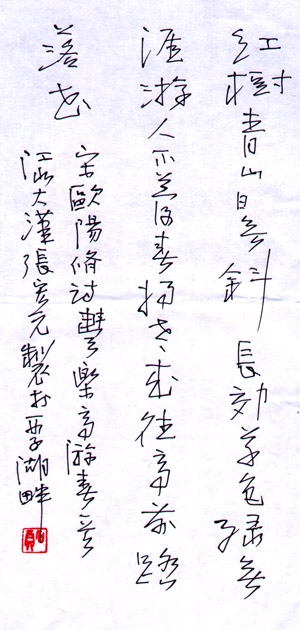 紅樹青山日欲斜長郊草色绿無
涯游人不管春將老來往亭前踏
落花
宋歐陽脩詩豐樂亭游春
大漢張宏元製於西子湖畔